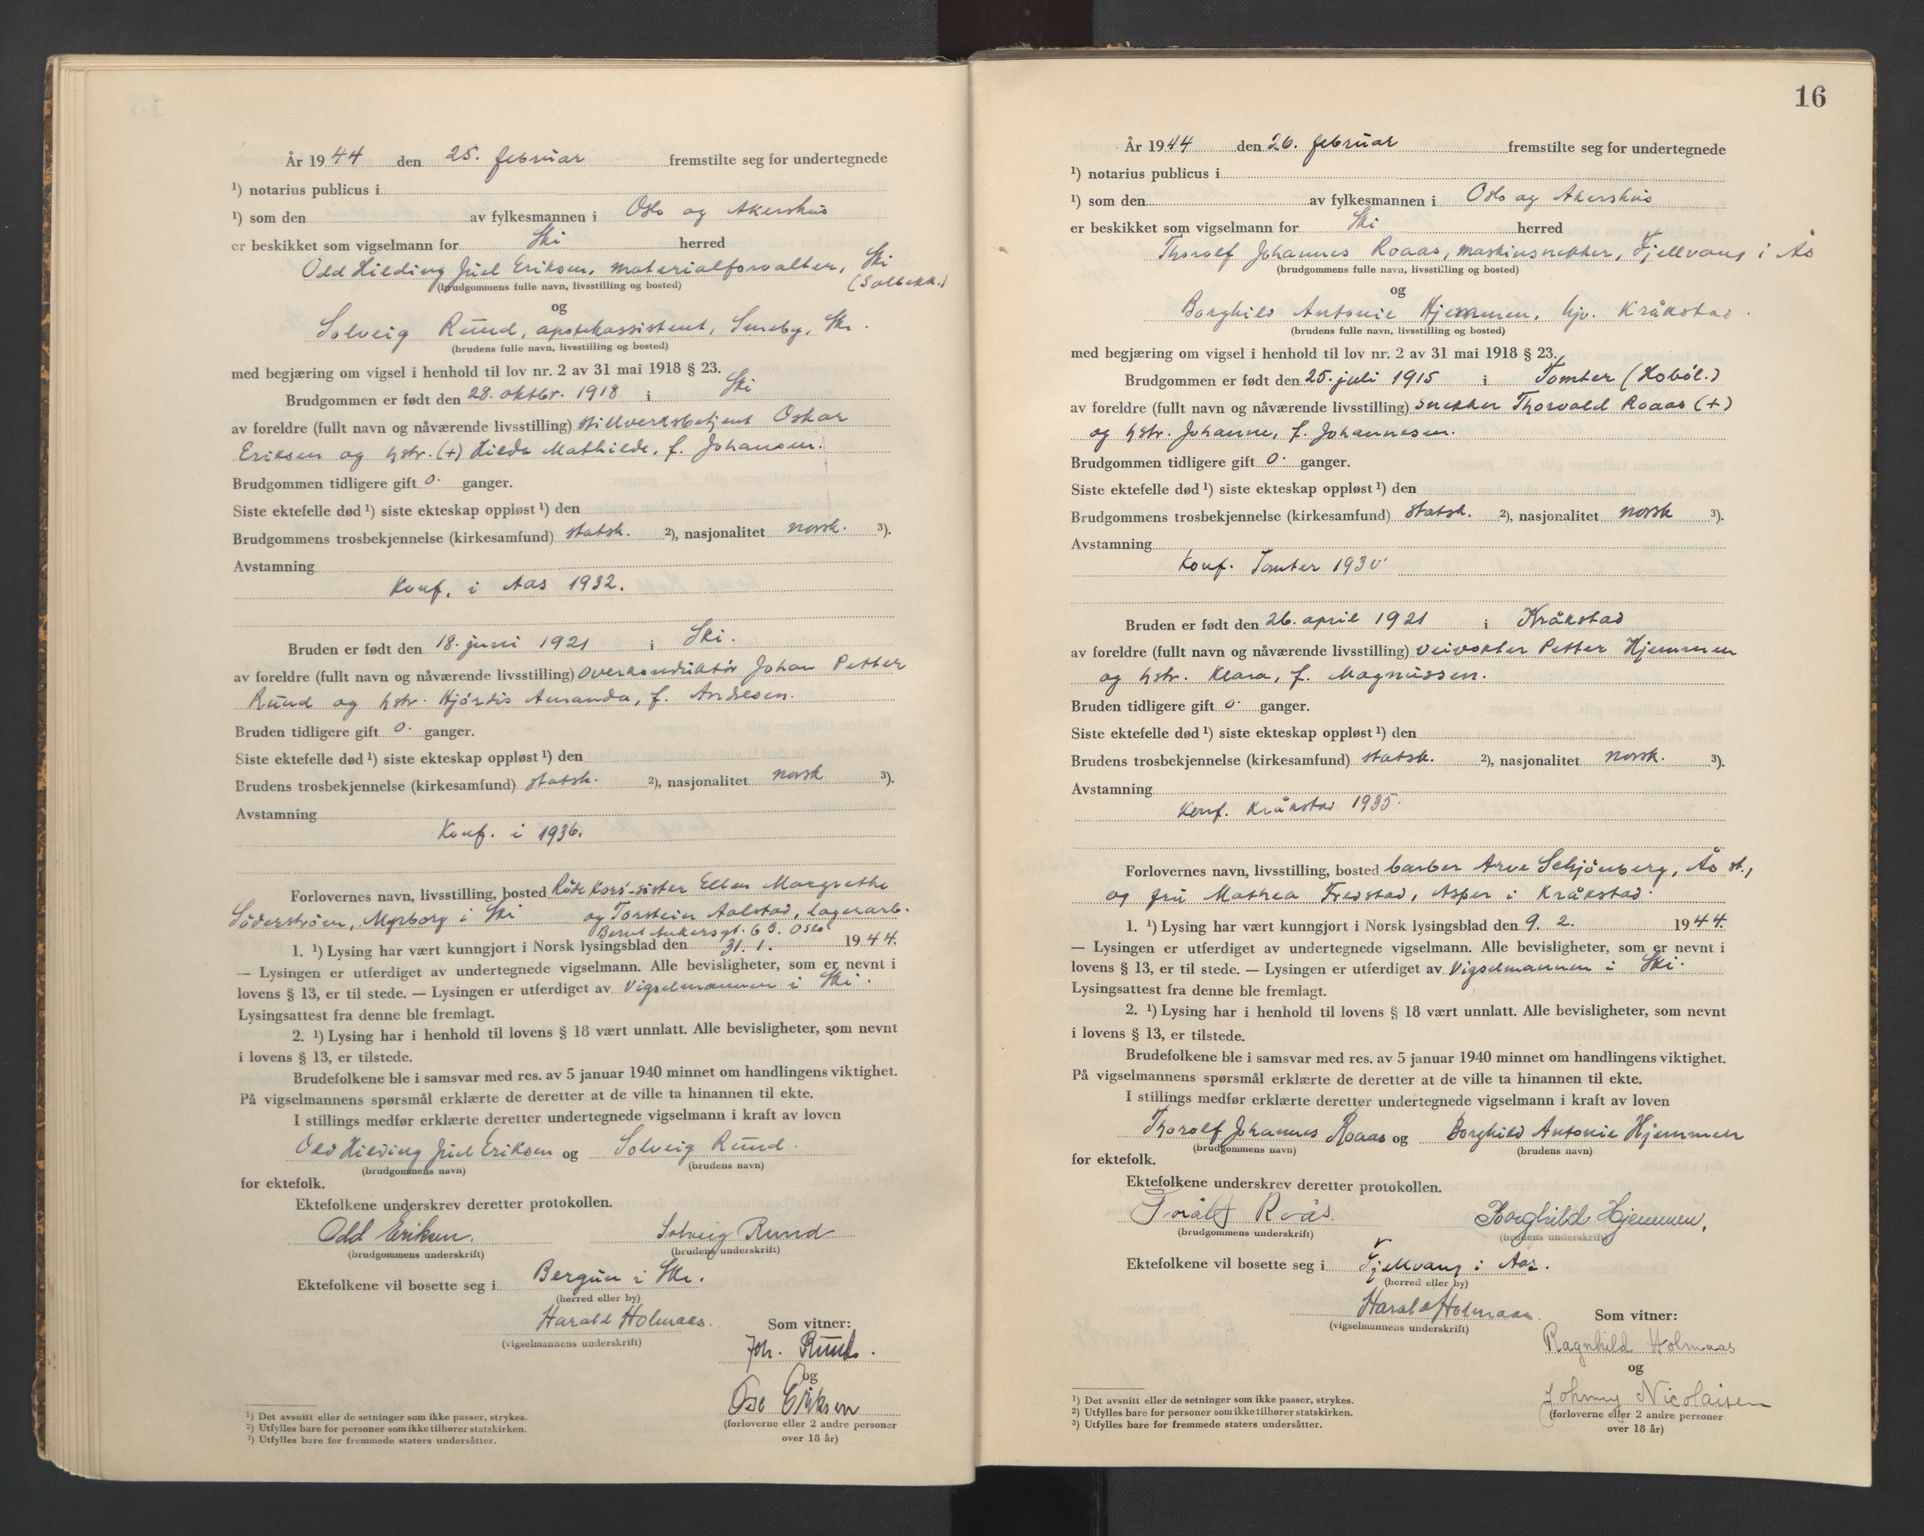 År 1944 den 25. februar fremstilte seg for undertegnede
¹) notarius publicus i
¹) som den av fylkesmannen i Oslo og Akershus
er beskikket som vigselmann for Ski herred
Odd Hilding Juel Eriksen, materialforvalter, Ski
(Solbakk.)
(brudgommens fulle navn, livsstilling og bosted)
og
Solveig Ruud, apotekassistent, Smeby, Ski.
(brudens fulle navn, livsstilling og bosted)
med begjæring om vigsel i henhold til lov nr. 2 av 31 mai 1918 § 23.
Brudgommen er født den 28. oktbr. 1918 i Ski
av foreldre (fullt navn og nåværende livsstilling) stillverksbetjent Oskar
Eriksen og hstr. (+) Hilda Mathilde, f. Johansen.
Brudgommen tidligere gift 0. ganger.
Siste ektefelle død ¹) siste ekteskap oppløst ¹) den
Brudgommens trosbekjennelse (kirkesamfund) statsk. ²), nasjonalitet norsk. ³).
Avstamning
Konf. i Aas 1932.
Bruden er født den 18. juni 1921 i Ski.
av foreldre (fullt navn og nåværende livsstilling) overkonduktør Johan Petter
Ruud og hstr. Hjørdis Amanda, f. Andresen.
Bruden tidligere gift 0. ganger.
Siste ektefelle død ¹) siste ekteskap oppløst ¹) den
Brudens trosbekjennelse (kirkesamfund) statsk. ²), nasjonalitet norsk ³).
Avstamning
Konf. i 1936.
Forlovernes navn, livsstilling, bosted Røde Kors-søster Ellen Margrethe
Söderstrøm, Myrborg i Ski og Torstein Aalstad, lagerarb.
Bernt Ankersgt. 6 B. Oslo
1. ¹) Lysing har vært kunngjort i Norsk lysingsblad den 31. 1. 1944.
— Lysingen er utferdiget av undertegnede vigselmann. Alle bevisligheter, som er nevnt i
lovens § 13, er til stede. — Lysingen er utferdiget av Vigselmannen i Ski.
Lysingsattest fra denne ble fremlagt.
2. ¹) Lysing har i henhold til lovens § 18 vært unnlatt. Alle bevisligheter, som nevnt
i lovens § 13, er tilstede.
Brudefolkene ble i samsvar med res. av 5 januar 1940 minnet om handlingens viktighet.
På vigselmannens spørsmål erklærte de deretter at de ville ta hinannen til ekte.
I stillings medfør erklærte deretter undertegnede vigselmann i kraft av loven
Odd Hilding Juel Eriksen og Solveig Ruud.
(brudgommens navn) (brudens navn)
for ektefolk.
Ektefolkene underskrev deretter protokollen.
Odd Eriksen. Solveig Ruud
(brudgommens underskrift) (brudens underskrift)
Ektefolkene vil bosette seg i Bergun i Ski.
(herred eller by)
Harald Holmaas.
(vigselmannens underskrift)
Som vitner:
Joh. Ruud.
og
Osc Eriksen
(forloverne eller 2 andre personer
over 18 år)
¹) Det avsnitt eller de setninger som ikke passer, strykes.
²) Utfylles bare for personer som ikke tilhører statskirken.
³) Utfylles bare for fremmede staters undersåtter.
16
År 1944 den 26. februar fremstilte seg for undertegnede
¹) notarius publicus i
¹) som den av fylkesmannen i Oslo og Akershus
er beskikket som vigselmann for Ski herred
Thorolf Johannes Roaas, maskinsnekker, Fjellvang i Ås
(brudgommens fulle navn, livsstilling og bosted)
og
Borghild Antonie Hjemmen, hjv. Kråkstad.
(brudens fulle navn, livsstilling og bosted)
med begjæring om vigsel i henhold til lov nr. 2 av 31 mai 1918 § 23.
Brudgommen er født den 25. juli 1915 i Tomter (Hobøl.)
av foreldre (fullt navn og nåværende livsstilling) snekker Thorvald Roaas (+)
og hstr. Johanne, f. Johannesen.
Brudgommen tidligere gift 0. ganger.
Siste ektefelle død ¹) siste ekteskap oppløst ¹) den
Brudgommens trosbekjennelse (kirkesamfund) statsk. ²), nasjonalitet norsk ³).
Avstamning
Konf. Tomter 1930.
Bruden er født den 26. april 1921 i Kråkstad
av foreldre (fullt navn og nåværende livsstilling) veivokter Petter Hjemmen
og hstr. Klara, f. Magnussen.
Bruden tidligere gift 0. ganger.
Siste ektefelle død ¹) siste ekteskap oppløst ¹) den
Brudens trosbekjennelse (kirkesamfund) statsk. ²), nasjonalitet norsk. ³).
Avstamning
Konf. Kråkstad 1935.
Forlovernes navn, livsstilling, bosted barber Arve Schjønberg, Ås st.,
og fru Mathea Fredstad, Asper i Kråkstad.
1. ¹) Lysing har vært kunngjort i Norsk lysingsblad den 9. 2. 1944.
— Lysingen er utferdiget av undertegnede vigselmann. Alle bevisligheter, som er nevnt i
lovens § 13, er til stede. — Lysingen er utferdiget av Vigselmannen i Ski.
Lysingsattest fra denne ble fremlagt.
2. ¹) Lysing har i henhold til lovens § 18 vært unnlatt. Alle bevisligheter, som nevnt
i lovens § 13, er tilstede.
Brudefolkene ble i samsvar med res. av 5 januar 1940 minnet om handlingens viktighet.
På vigselmannens spørsmål erklærte de deretter at de ville ta hinannen til ekte.
I stillings medfør erklærte deretter undertegnede vigselmann i kraft av loven
Thorolf Johannes Roaas og Borghild Antonie Hjemmen
(brudgommens navn) (brudens navn)
for ektefolk.
Ektefolkene underskrev deretter protokollen.
Toralf Roås. Borghild Hjemmen.
(brudgommens underskrift) (brudens underskrift)
Ektefolkene vil bosette seg i Fjellvang i Aas.
(herred eller by)
Harald Holmaas
(vigselmannens underskrift)
Som vitner:
Ragnhild Holmaas
og
Johnny Nicolaisen
(forloverne eller 2 andre personer
over 18 år)
¹) Det avsnitt eller de setninger som ikke passer, strykes.
²) Utfylles bare for personer som ikke tilhører statskirken.
³) Utfylles bare for fremmede staters undersåtter.